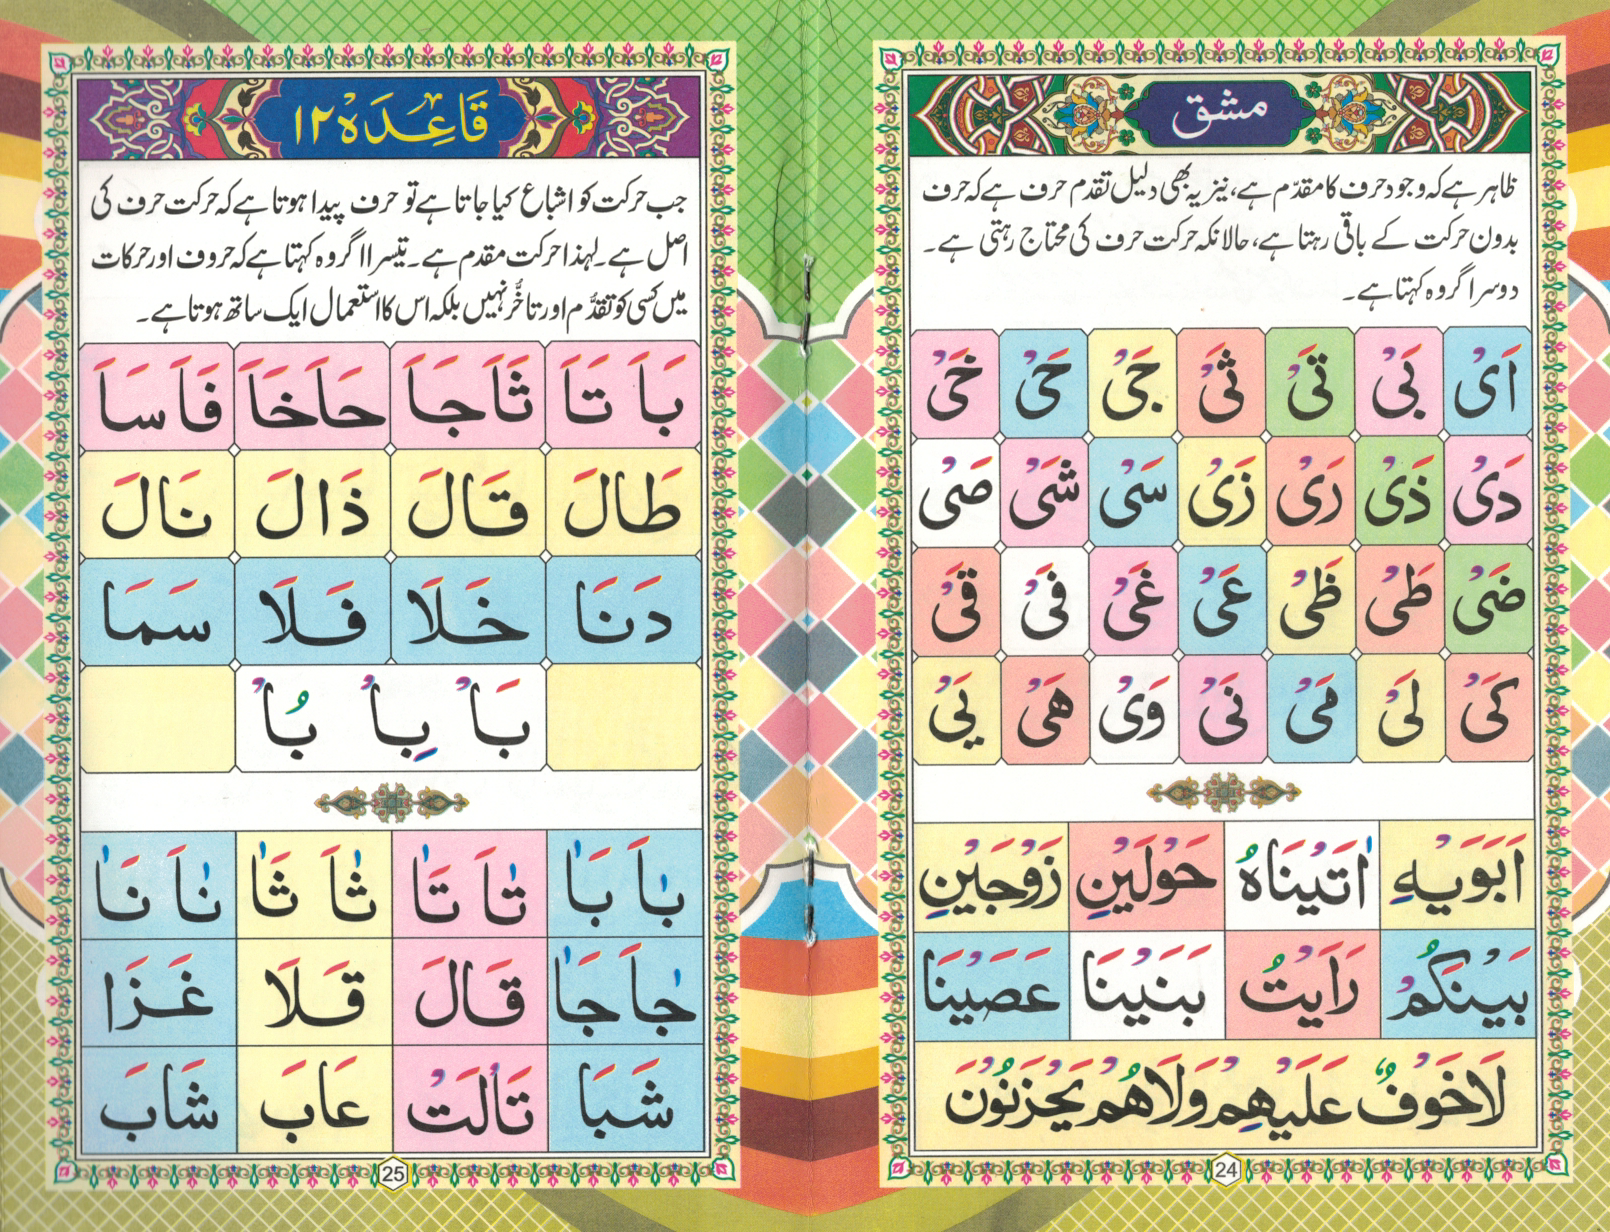 مشق
ظاہر ہے کہ وجود حرف کا مقدّم ہے، نیز یہ بھی دلیل تقدم حرف ہے کہ حرف
بدون حرکت کے باقی رہتا ہے، حالانکہ حرکت حرف کی محتاج رہتی ہے۔
دوسرا گروہ کہتا ہے۔
اَیْ بَیْ تَیْ ثَیْ جَیْ حَیْ خَیْ
دَیْ ذَیْ رَیْ زَیْ سَیْ شَیْ صَیْ
ضَیْ طَیْ ظَیْ عَیْ غَیْ فَیْ قَیْ
کَیْ لَیْ مَیْ نَیْ وَیْ هَیْ یَیْ
اَبَوَیْهِ اٰتَیْنَاهُ حَوْلَیْنِ زَوْجَیْنِ
بَیْنَکُمْ رَاَیْتُ بَنَیْنَا عَصَیْنَا
لَاخَوْفٌ عَلَیْهِمْ وَلَاهُمْ یَحْزَنُوْنَ
24
قَاعِدَہْ ۱۲
جب حرکت کو اشباع کیا جاتا ہے تو حرف پیدا ہوتا ہے کہ حرکت حرف کی
اصل ہے۔ لہذا حرکت مقدم ہے۔ تیسرا اگروہ کہتا ہے کہ حروف اور حرکات
میں کسی کو تقدُّم اور تاخُّر نہیں بلکہ اس کا استعمال ایک ساتھ ہوتا ہے۔
بَا تَا ثَا جَا حَا خَا فَا سَا
طَالَ قَالَ ذَالَ نَالَ
دَنَا خَلَا فَلَا سَمَا
بَاْ بِاْ بُاْ
بٰا بَا تٰا تَا ثٰا ثَا نٰا نَا
جٰا جَا قَالَ قَلَا غَزَا
شَبَا تَالَتْ عَابَ شَابَ
25